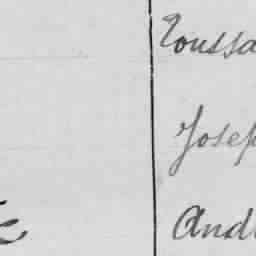 Toussa
Josep
And